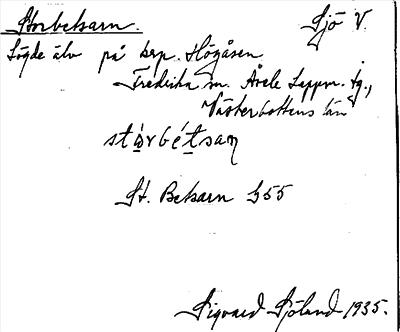 Storbetsarn. Sjö V.
Lögde älv på krp. Högåsen
Fredrika sn. Åsele Lappm. tg.,
Västerbottens län
stårbétsaṇ
St. Betsarn 355
Sigvard Sjöland 1935.